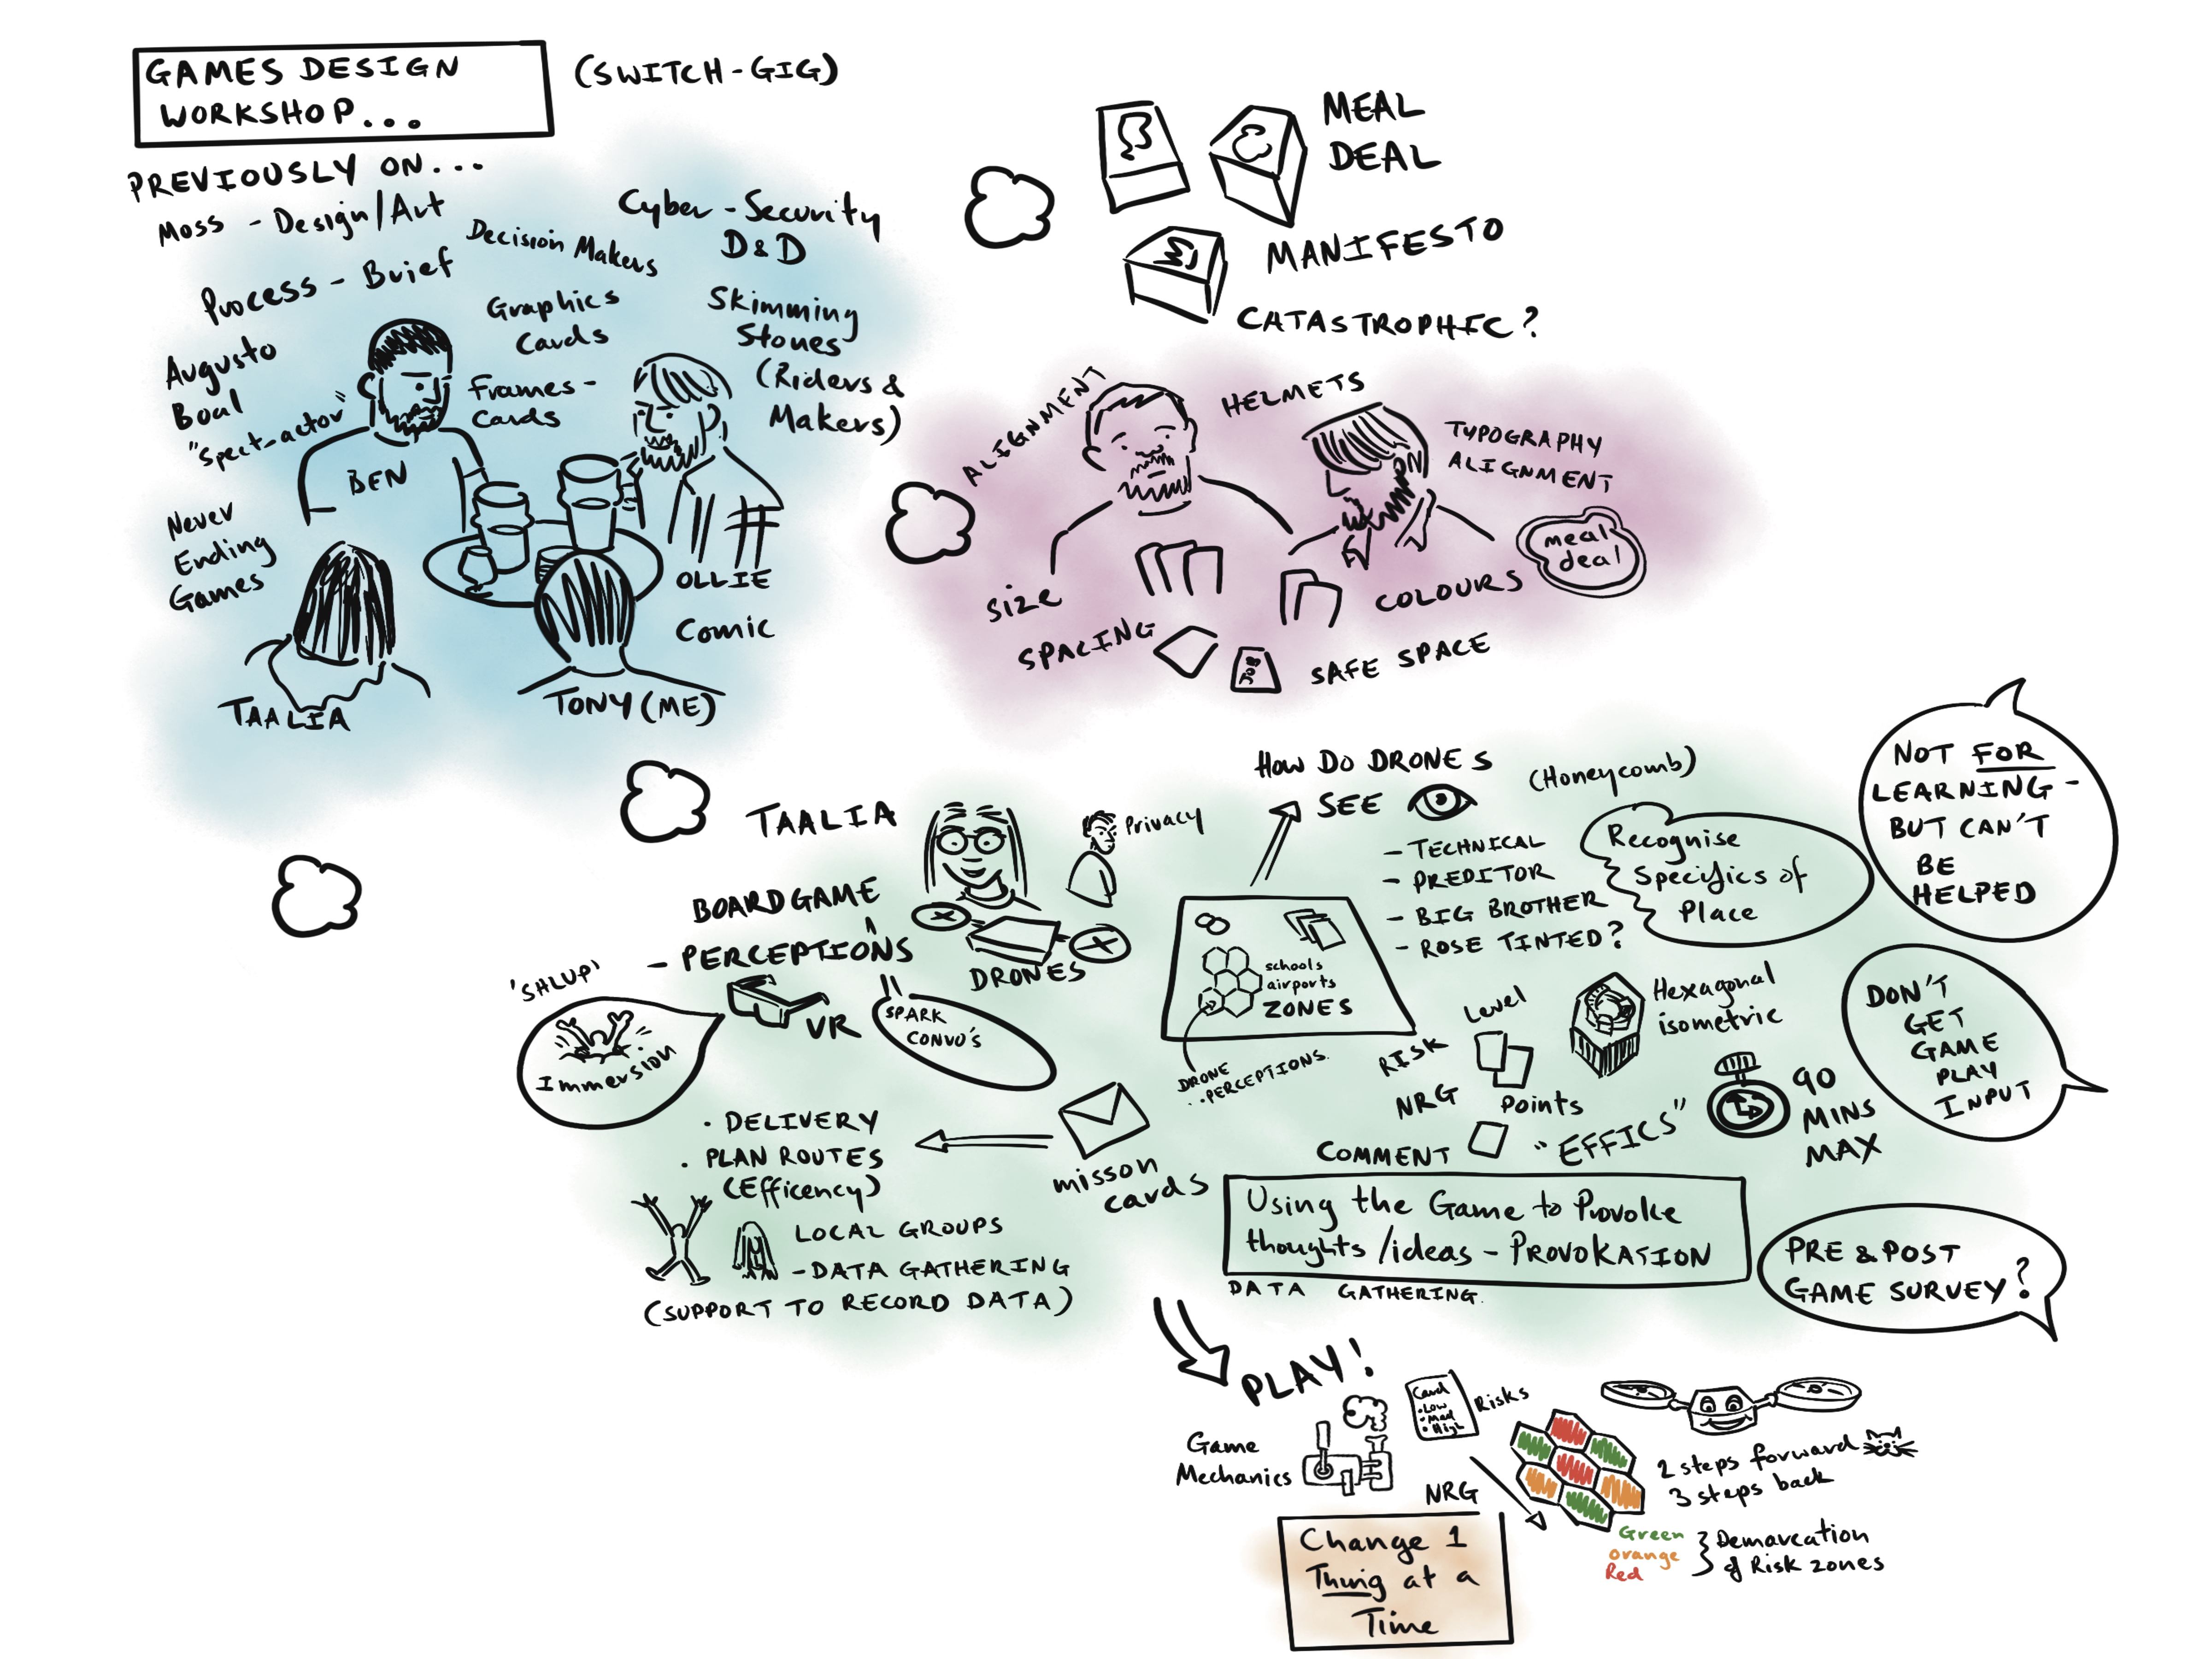 GAMES DESIGN
WORKSHOP...
(SWITCH-GIG)
PREVIOUSLY ON...
Moss - Design/Art
Decision Makers
Cyber-Security
D&D
Process - Brief
Graphics
Cards
Skimming
Stones
(Riders &
Makers)
Augusto
Boal
"Spect-actor"
Frames-
Cards
BEN
Never
Ending
Games
OLLIE
Comic
TAALIA
TONY(ME)
MEAL
DEAL
MANIFESTO
CATASTROPHIC?
ALIGNMENT
HELMETS
TYPOGRAPHY
ALIGNMENT
meal
deal
SIZE
COLOURS
SPACING
SAFE SPACE
TAALIA
Privacy
BOARDGAME
^
- PERCEPTIONS
DRONES
'SHLUP'
Immersion
VR
SPARK
CONVO'S
HOW DO DRONES
SEE
(Honeycomb)
- TECHNICAL
- PREDITOR
- BIG BROTHER
- ROSE TINTED?
Recognise
Specifics of
Place
NOT FOR
LEARNING -
BUT CAN'T
BE
HELPED
schools
airports
ZONES
DRONE
..PERCEPTIONS.
Level
RISK
NRG
Points
COMMENT
"EFFICS"
Hexagonal
isometric
90
MINS
MAX
DON'T
GET
GAME
PLAY
INPUT
misson
cards
• DELIVERY
• PLAN ROUTES
(Efficency)
LOCAL GROUPS
- DATA GATHERING
(SUPPORT TO RECORD DATA)
Using the Game to Provoke
thoughts/ideas - PROVOKASION
DATA GATHERING.
PRE & POST
GAME SURVEY?
PLAY!
Game
Mechanics
Card
• Low
• Med
• High
Risks
NRG
2 steps forward
3 steps back
Green
Orange
Red
} Demarcation
of Risk zones
Change 1
Thing at a
Time